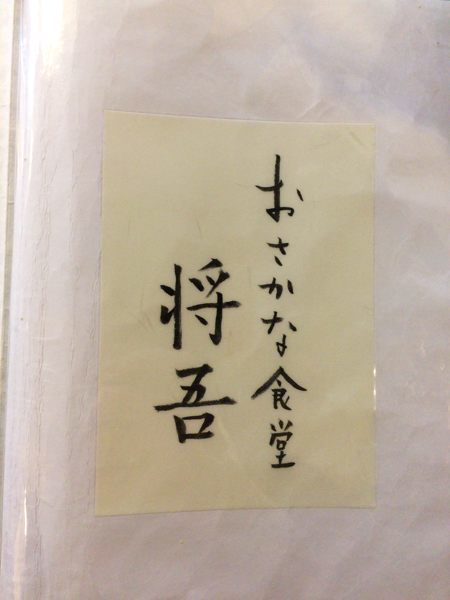 おさかな食堂
将吾